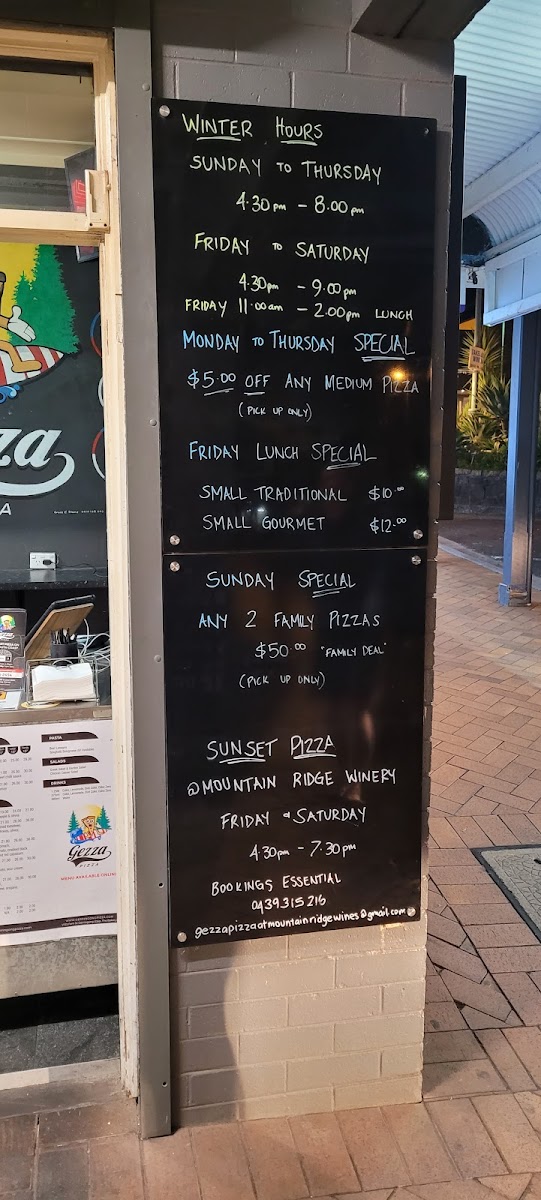 WINTER HOURS
SUNDAY TO THURSDAY
4.30pm - 8.00pm
FRIDAY TO SATURDAY
4.30pm - 9.00pm
FRIDAY 11.00am - 2.00pm LUNCH
MONDAY TO THURSDAY SPECIAL
$5.00 OFF ANY MEDIUM PIZZA
(PICK UP ONLY)
FRIDAY LUNCH SPECIAL
SMALL TRADITIONAL $10.00
SMALL GOURMET $12.00
SUNDAY SPECIAL
ANY 2 FAMILY PIZZAS
$50.00 "FAMILY DEAL"
(PICK UP ONLY)
SUNSET PIZZA
@MOUNTAIN RIDGE WINERY
FRIDAY & SATURDAY
4.30pm - 7.30pm
BOOKINGS ESSENTIAL
0439315216
gezzapizzaatmountainridgewines@gmail.com
za
A
PASTA
SALADS
DRINKS
Gezza
PIZZA
MENU AVAILABLE ONLINE